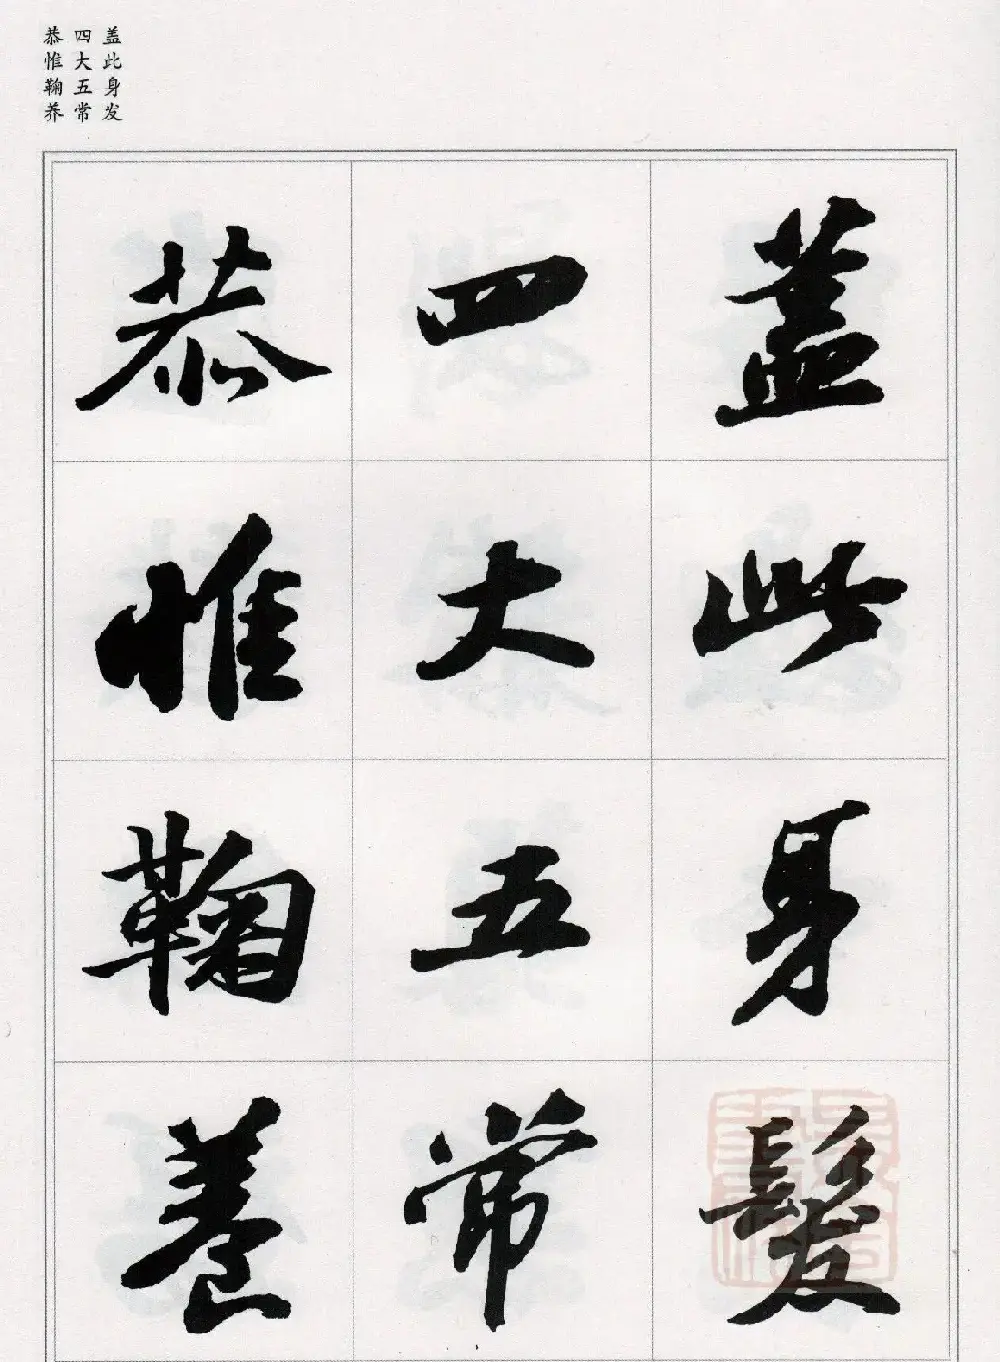 盖此身发
四大五常
恭惟鞠养
蓋此身髮
四大五常
恭惟鞠養